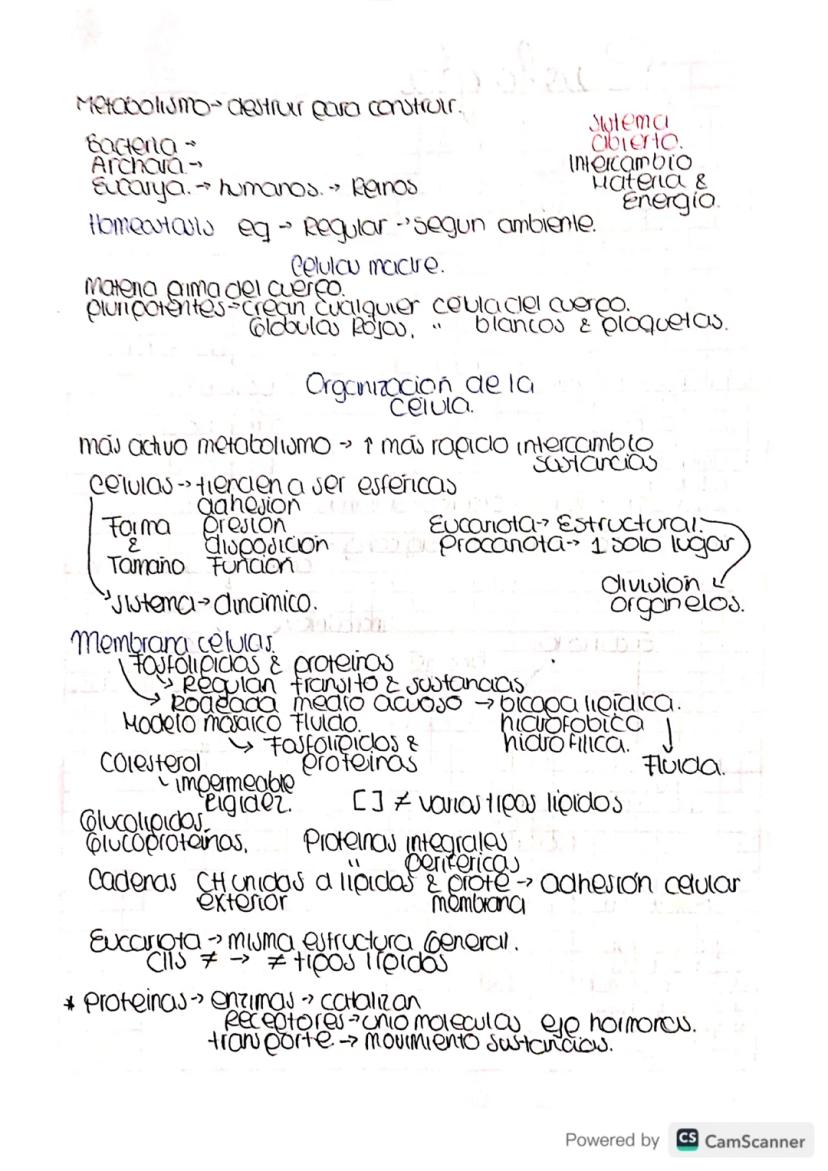 Metabolismo → destruir para construir.
Sistema
abierto.
Intercambio
Materia &
Energío.
Bacteria →
Archara →
Eucarya. → humanos. → Reinos
Homeostasis eq → Regular → segun ambiente.
Celulas madre.
Materia prima del cuerpo.
pluripotentes → crean cualquier celula del cuerpo.
Globulas Rojas, " blancos & plaquetas.
Organización de la
celula.
más activo metabolismo → ↑ más rapido intercambio
sustancias
Celulas → tienden a ser esfericas
Forma
&
Tamaño
adhesion
presion
disposicion
Funcion
Sistema → dinamico.
Eucariota → Estructural.
Procariota → 1 solo lugar
division
organelos.
Membrana celular
Fosfolipidos & proteinas
Regulan transito & sustancias
Rodeada medio acuoso → bicapa lipidica.
hidrofobica
hidrofilica.
Fluida.
Modelo mosaico Fluido.
→ Fosfolipidos &
proteinas
Colesterol
impermeable
rigidez.
[ ] ≠ varios tipos lipidos
Glucolipidos.
Glucoproteinas.
Proteinas integrales
" perifericas
Cadenas CH unidas a lipidos & prote → adhesión celular
exterior membrana
Eucariota → misma estructura General.
Clls ≠ → ≠ tipos lipidos
* Proteinas → enzimas → catalizan
Receptores → unio moleculas ejo hormonas.
transporte. → movimiento sustancias.
Powered by CS CamScanner